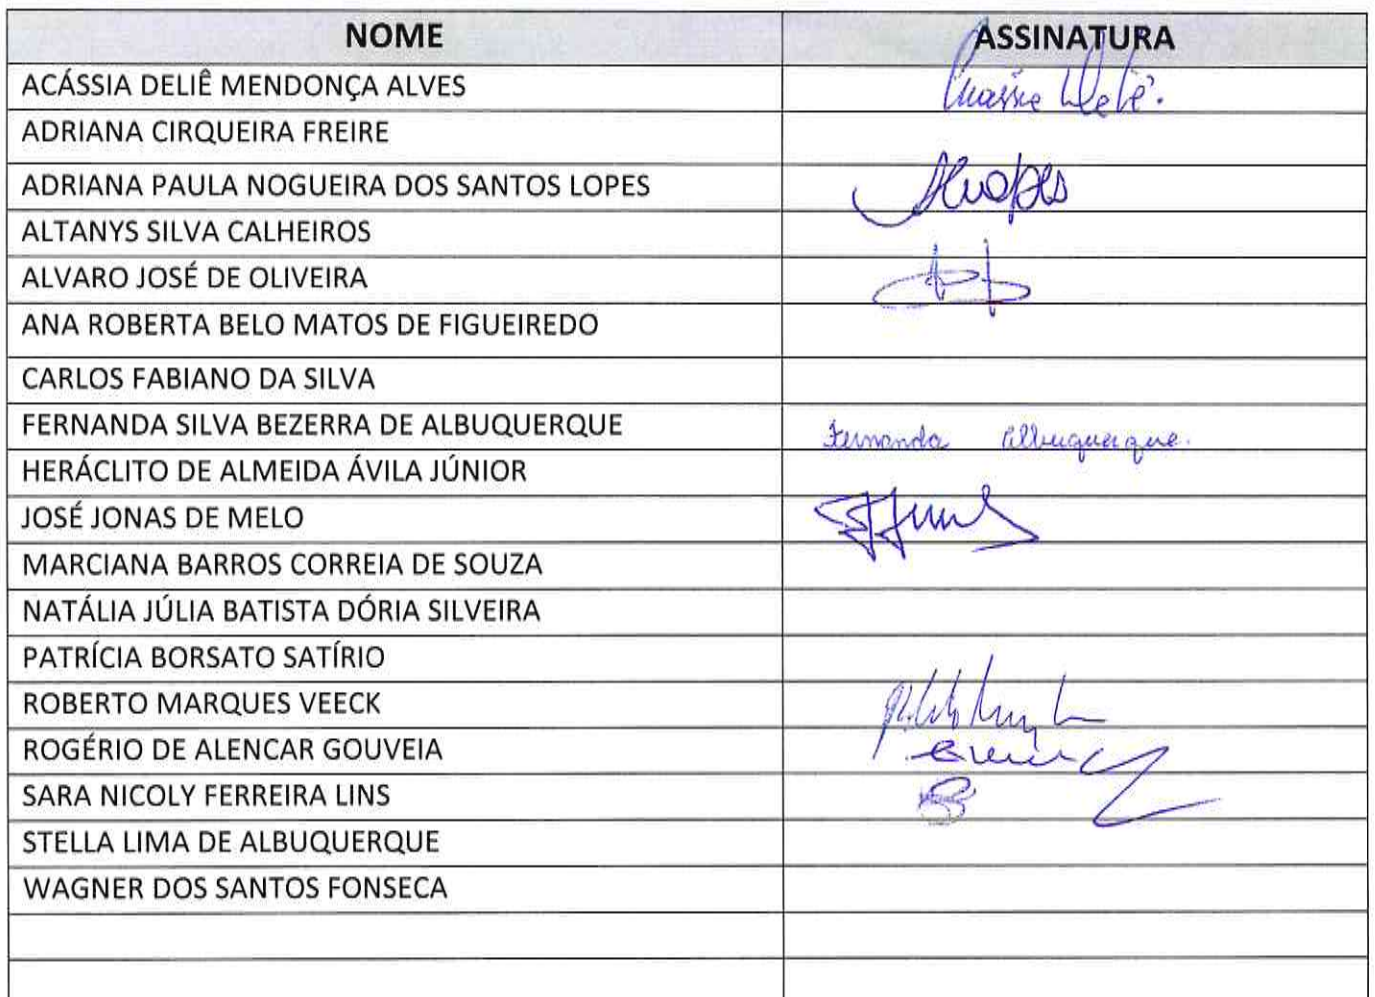 NOME ASSINATURA
ACÁSSIA DELIÊ MENDONÇA ALVES
ADRIANA CIRQUEIRA FREIRE
ADRIANA PAULA NOGUEIRA DOS SANTOS LOPES
ALTANYS SILVA CALHEIROS
ALVARO JOSÉ DE OLIVEIRA
ANA ROBERTA BELO MATOS DE FIGUEIREDO
CARLOS FABIANO DA SILVA
FERNANDA SILVA BEZERRA DE ALBUQUERQUE Fernanda Albuquerque.
HERÁCLITO DE ALMEIDA ÁVILA JÚNIOR
JOSÉ JONAS DE MELO
MARCIANA BARROS CORREIA DE SOUZA
NATÁLIA JÚLIA BATISTA DÓRIA SILVEIRA
PATRÍCIA BORSATO SATÍRIO
ROBERTO MARQUES VEECK
ROGÉRIO DE ALENCAR GOUVEIA
SARA NICOLY FERREIRA LINS
STELLA LIMA DE ALBUQUERQUE
WAGNER DOS SANTOS FONSECA